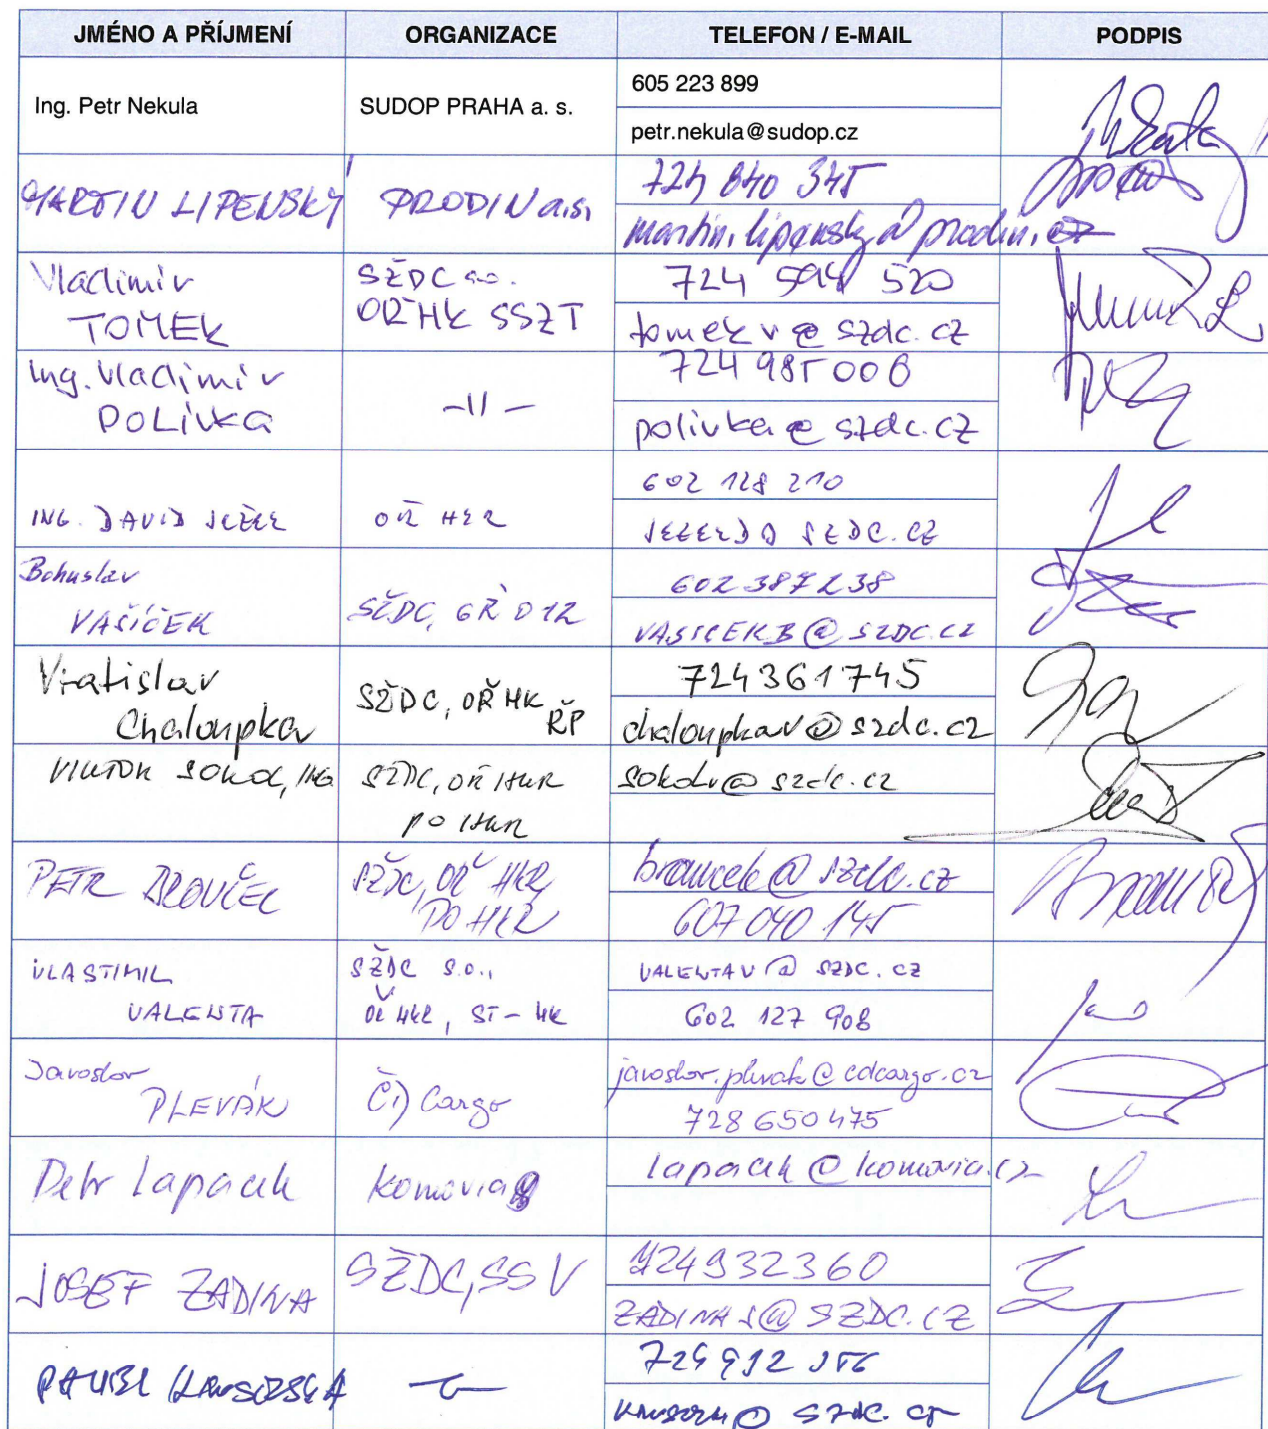 JMÉNO A PŘÍJMENÍ ORGANIZACE TELEFON / E-MAIL PODPIS
Ing. Petr Nekula SUDOP PRAHA a. s. 605 223 899
petr.nekula@sudop.cz
MARTIN LIPENSKÝ PRODIN a.s. 724 840 345
martin.lipensky@prodin.cz
Vladimir TOMEK SŽDC s.o. OŘ HK SSZT 724 594 520
tomekv@szdc.cz
Ing. Vladimir POLIVKA -11- 724 985 006
polivka@szdc.cz
ING. DAVID JEŽEK OŘ HKR 602 128 210
JEZEKD@SZDC.CZ
Bohuslav VAŠÍČEK SŽDC, GŘ O12 602 387 238
VASICEKB@SZDC.CZ
Vratislav Chaloupka SŽDC, OŘ HK ŘP 724361745
chaloupkav@szdc.cz
VIKTOR SOKOL, ING SŽDC, OŘ HKR PO HKR sokolv@szdc.cz
PETR BROUČEK SŽDC, OŘ HKR, PO HKR broucek@szdc.cz
607 040 145
VLASTIMIL VALENTA SŽDC s.o., OŘ HKR, ST-HK VALENTAV@SZDC.CZ
602 127 908
Jaroslav PLEVÁK ČD Cargo jaroslav.plevak@cdcargo.cz
728 650 475
Petr Lapacek Komovia lapacek@komovia.cz
JOSEF ZADINA SŽDC, SSV 724932360
ZADINAJ@SZDC.CZ
PAVEL
SZDC.CZ